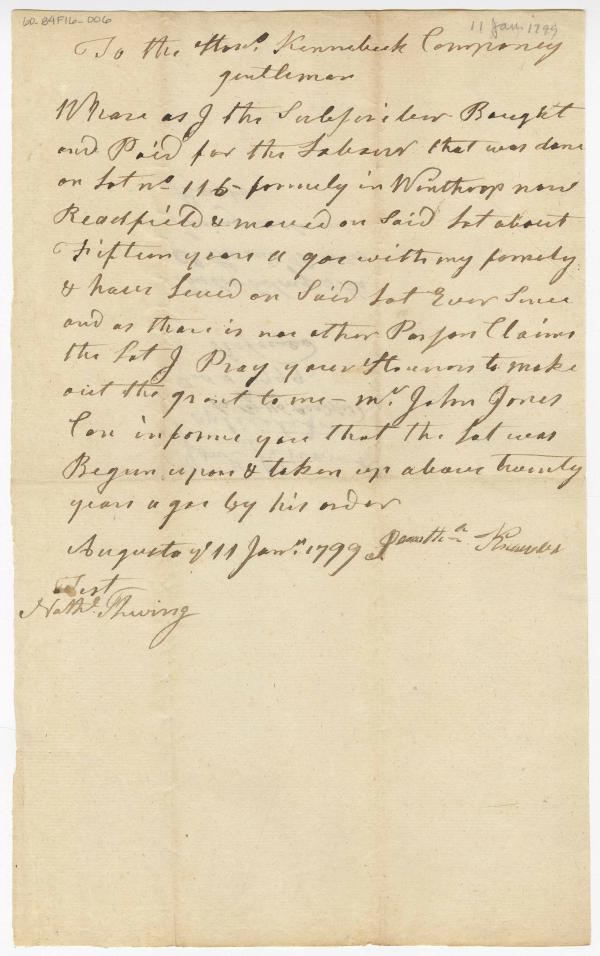 60-B4F16-006
11 Jan. 1799
To the Hono. Kennebeck Componey
gentlemen
Whare as I the Subscriber Bought
and Paid for the Labour that was done
on Lot no 116 - formely in Winthrop now
Readfield & moved on Said Lot about
Fifteen years a goe with my famely
& have Leved on Said Lot Ever Sence
and as thare is noe other Parson Claims
the Lot I Pray your Honnors to make
out the grant to me - Mr. John Jones
Can informe you that the Lot was
Begun upon & taken up above twenty
years a goe by his order
Augusta ye 11 Janr. 1799
Test
Nathl. Thwing